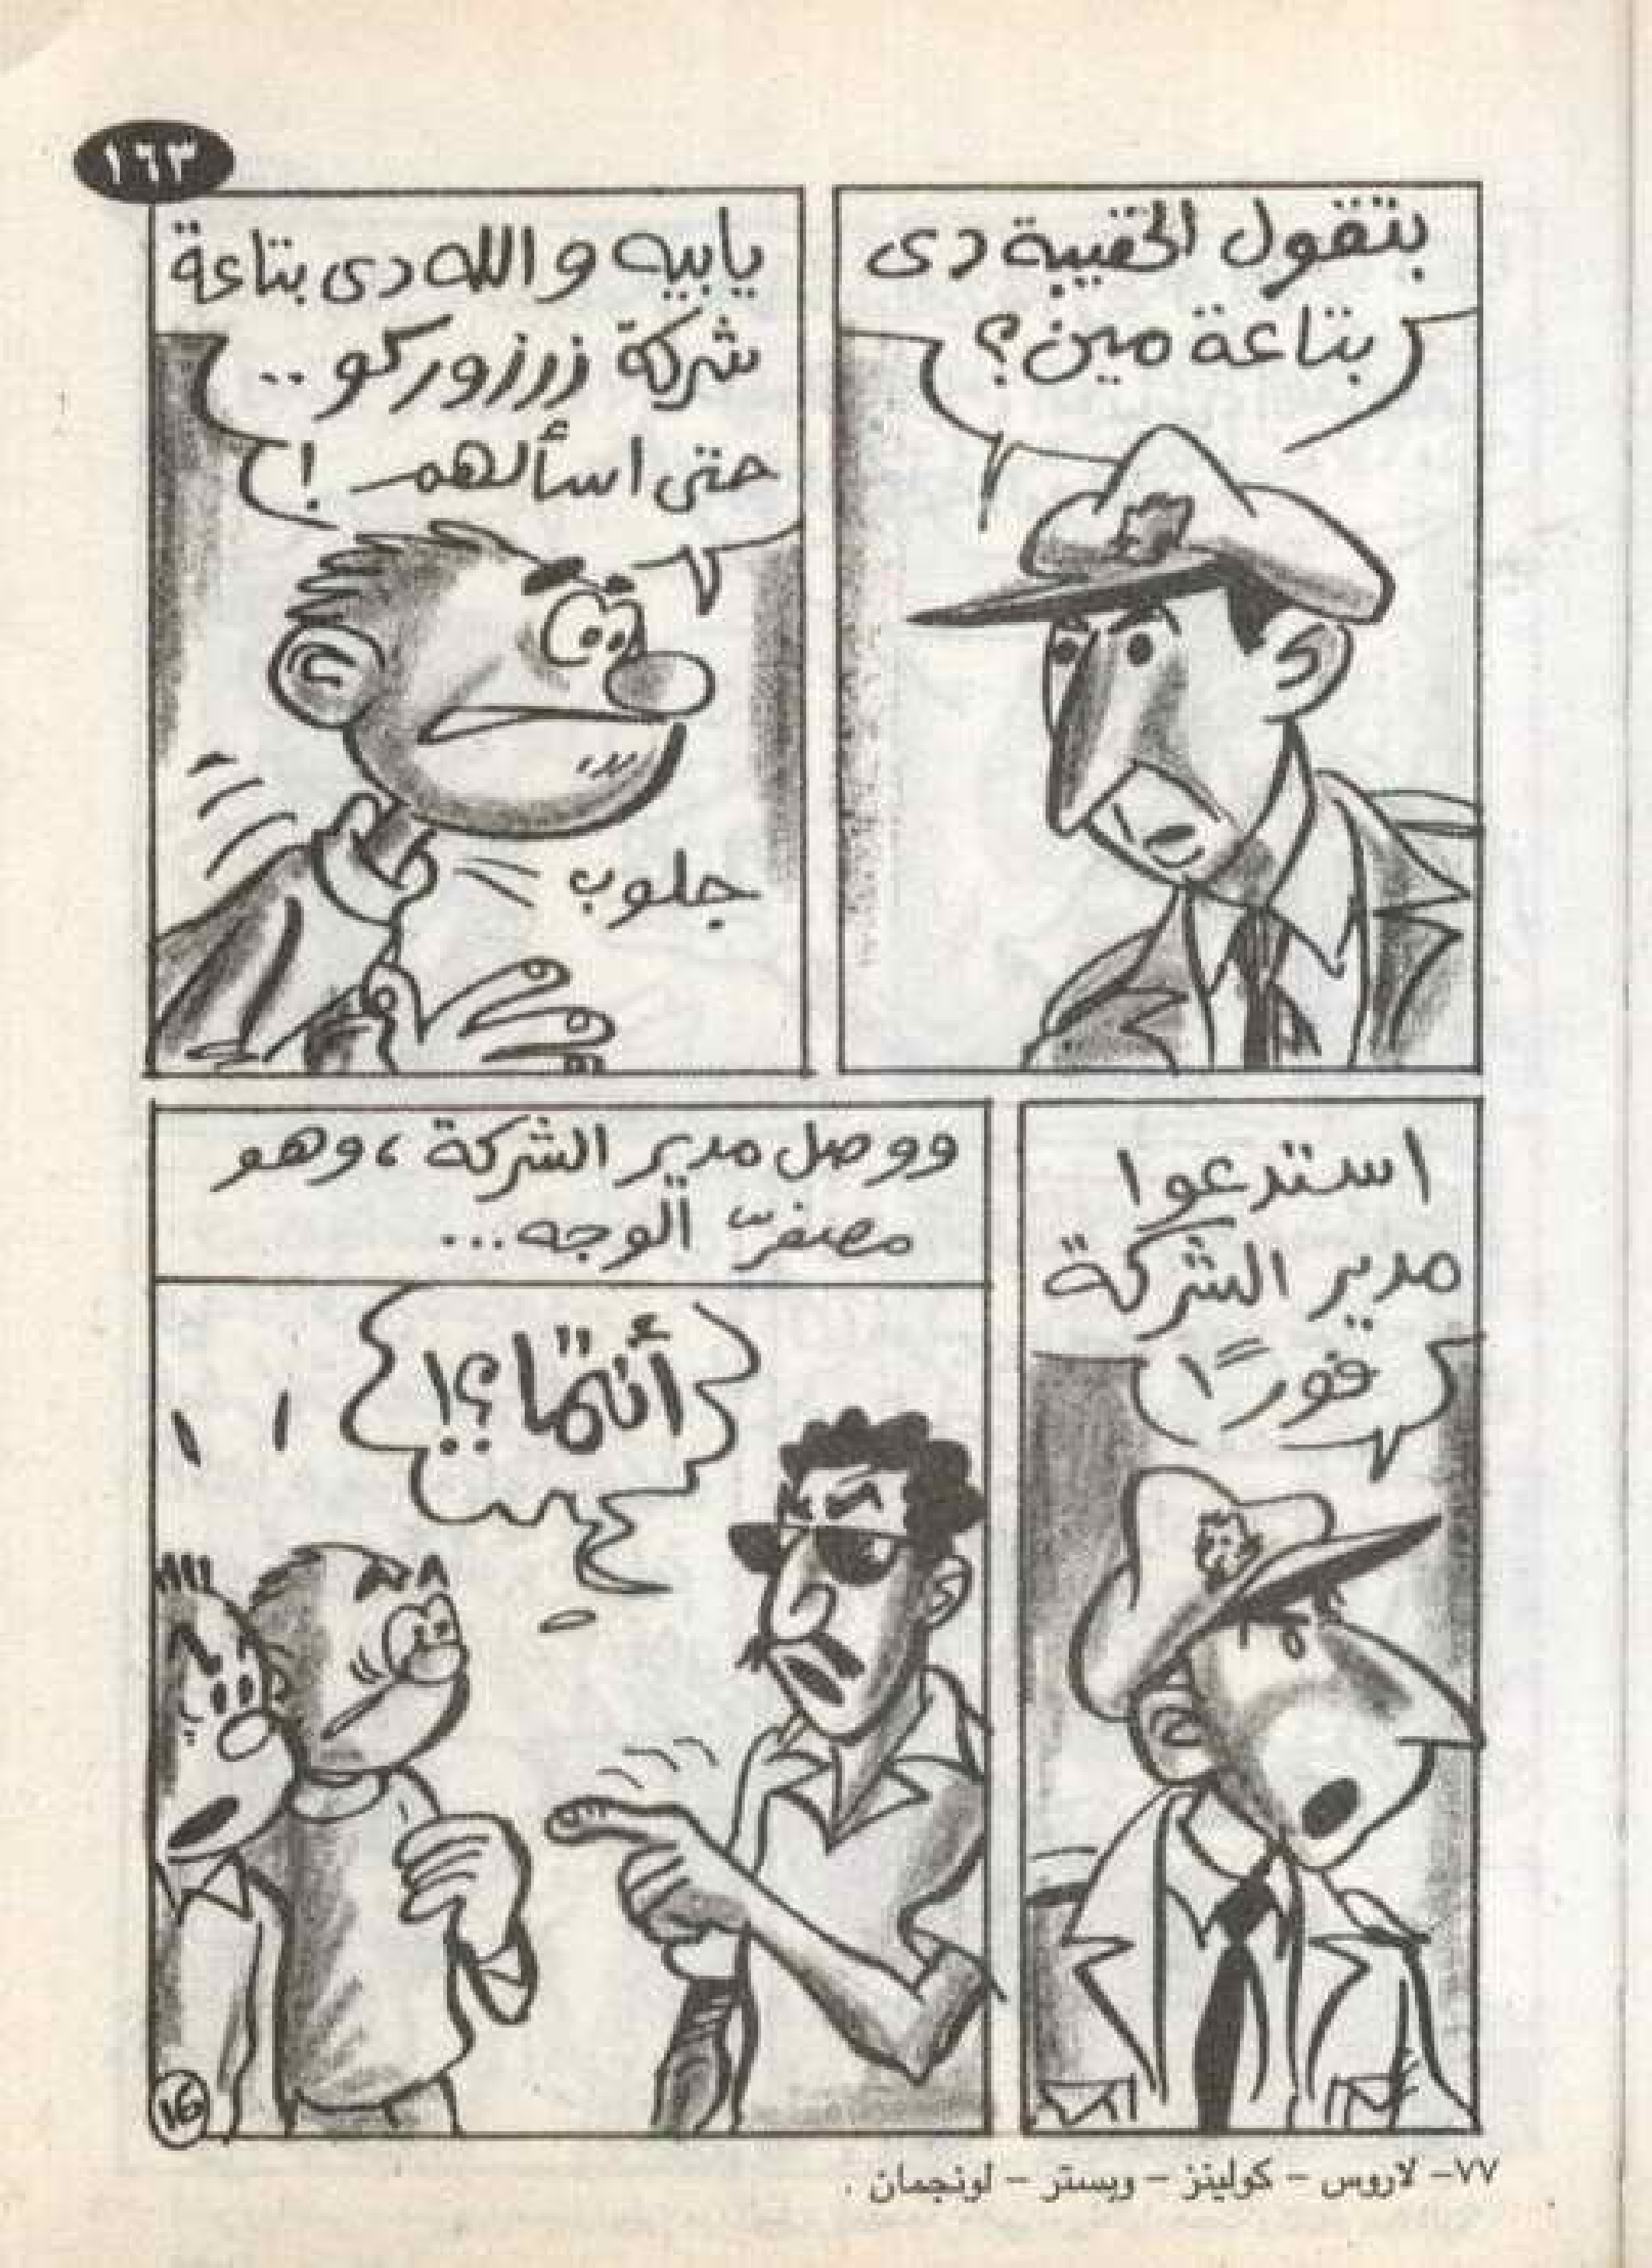 ١٦٣
بتقول الحقيبة دى
بتاعة مين؟
يابيه والله دى بتاعة
شركة زرزوركو..
حتى اسألهم !
جلوب
استدعوا
مدير الشركة
فورًا
ووصل مدير الشركة، وهو
مصفرّ الوجه...
أنتما؟!
١٦
٧٧- لاروس - كولينز - وبستر - لونجمان .